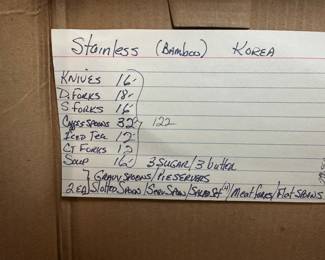 Stainless (Bamboo) KOREA
KNIVES 16
D. FORKS 18
S FORKS 16
Coffee SPOONS 32 122
ICED TEA 12
CT FORKS 12
SOUP 16 3 SUGAR/3 butter
7 GRAVY SPOONS/PIE SERVERS
2 EA Slotted Spoon/Serv Spoon/ /Meat forks/Flat Spoons